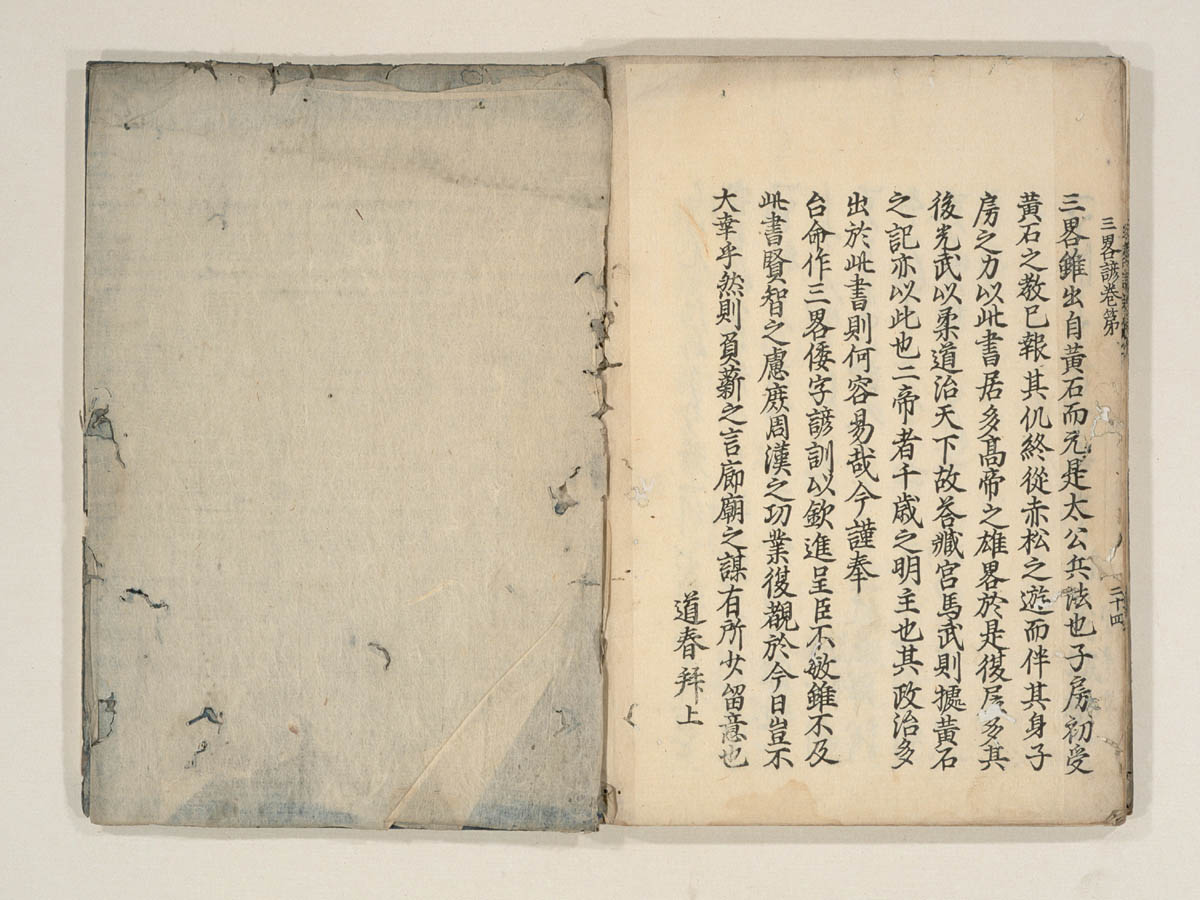 三畧諺卷第
二十四
三畧雖出自黃石而元是太公兵法也子房初受
黃石之教已報其仇終從赤松之遊而伴其身子
房之力以此書居多高帝之雄畧於是復居多其
後光武以柔道治天下故荅臧宮馬武則據黃石
之記亦以此也二帝者千歲之明主也其政治多
出於此書則何容易哉今謹奉
台命作三畧倭字諺訓以欽進呈臣不敏雖不及
此書賢智之慮庶周漢之功業復觀於今日豈不
大幸乎然則負薪之言廊廟之謀有所少留意也
道春拜上